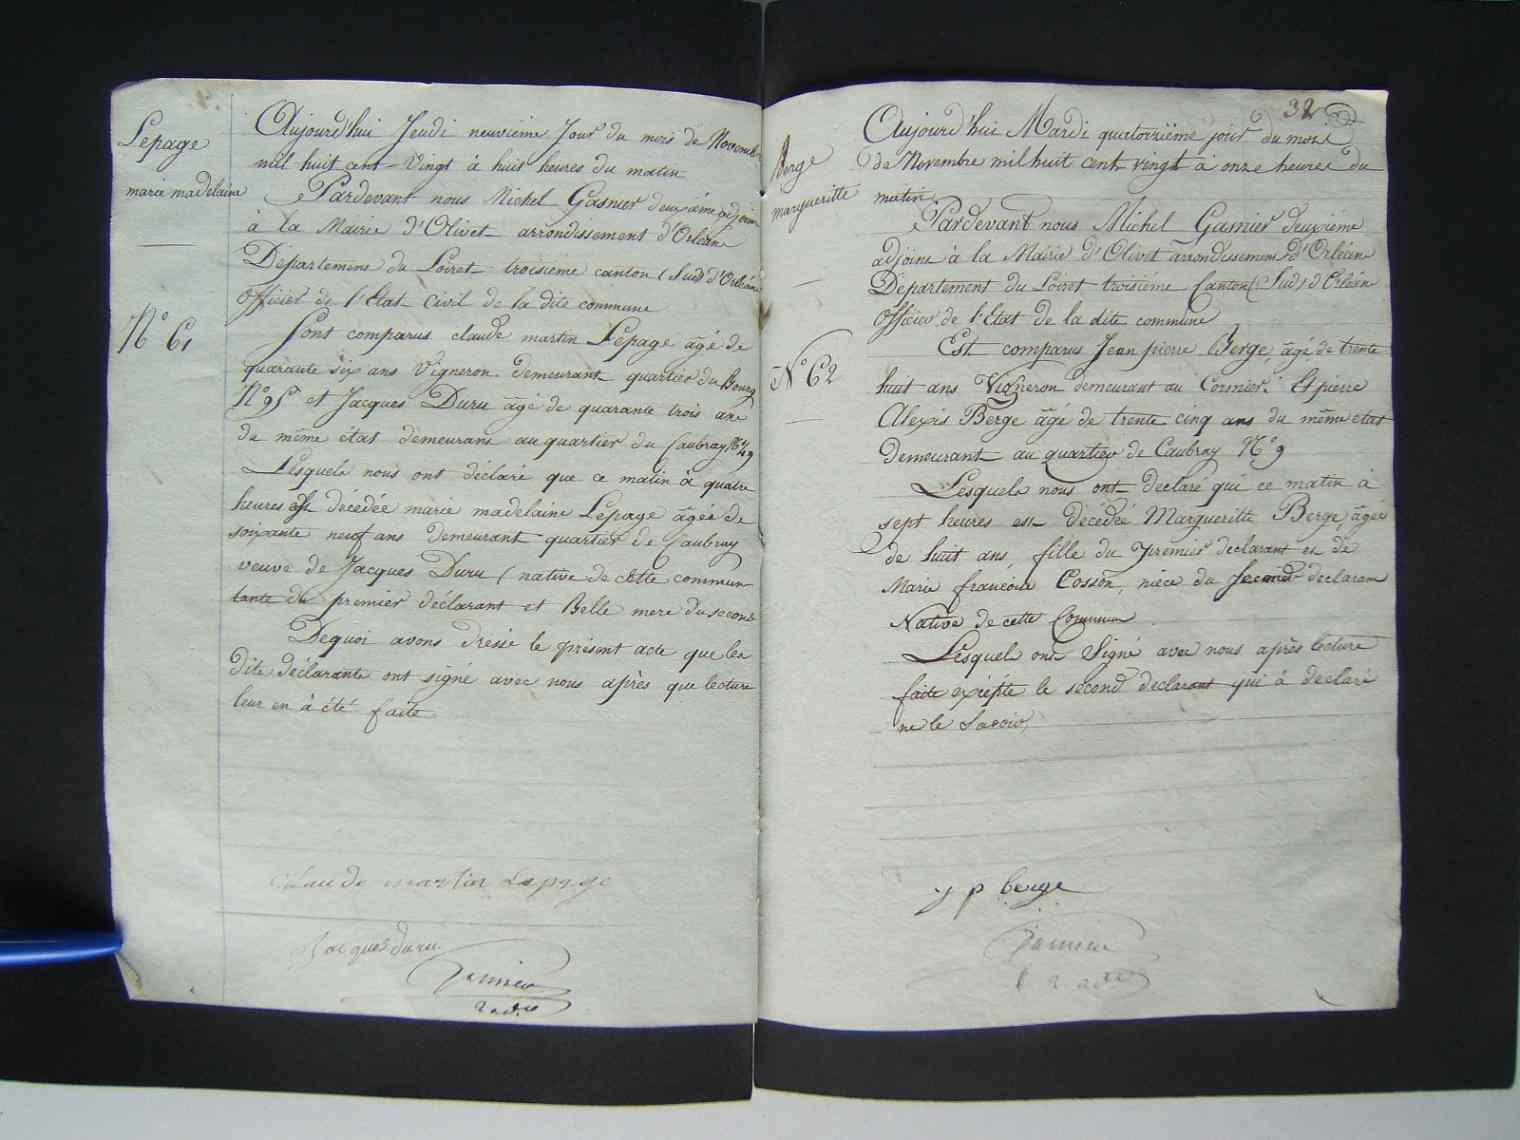 Lepage
marie madelaine
N° 61
Aujourd'hui Jeudi neuvieme Jour du mois de Novembre
mil huit cent vingt à huit heures du matin
Pardevant nous Michel Gasnier deuxième adjoint
à la Mairie d'Olivet arrondissement d'Orléans
Département du Loiret troisieme canton (Sud) d'Orléans
officier de l'Etat Civil de la dite commune
Sont comparus claude martin Lepage âgé de
quarante six ans Vigneron demeurant quartier du Bourg
et Jacques Duru âgé de quarante trois ans
de même état demeurans au quartier du Caubray N° 49
Lesquels nous ont déclaré que ce matin à quatre
heures est décédée marie madelaine Lepage âgée de
soixante neuf ans demeurant quartier de Caubray
veuve de Jacques Duru (native de cette commun
tante du premier déclarant et Belle mere du second
Dequoi avons dressé le présent acte que les
dits déclarants ont signé avec nous après que lecture
leur en à été faite
Claude martin Lepage
Jacques duru
Gasnier
2 adt
32
Berge
margueritte
N° 62
Aujourd'hui Mardi quatorzième jour du mois
de Novembre mil huit cent vingt à onze heures du
matin
Pardevant nous Michel Gasnier deuxième
adjoint à la Mairie d'Olivet arrondissement d'Orléans
Département du Loiret troisiéme Canton (Sud) d'Orléans
Officier de l'Etat de la dite commune
Est comparus Jean pierre Berge, âgé de trente
huit ans Vigneron demeurant au Cormier. Et pierre
Alexis Berge âgé de trente cinq ans du même etat
demeurant au quartier de Caubray N° 9
Lesquels nous ont declaré qui ce matin à
sept heures est décédée Margueritte Berge, âgée
de huit ans, fille du premier declarant et de
Marie francoise Cosson, niece du second declarant
Native de cette Commune
Lesquels ont Signé avec nous après lecture
faite excepte le second declarant qui à declaré
ne le Savoir,
j p berge
Gasnier
2 adt